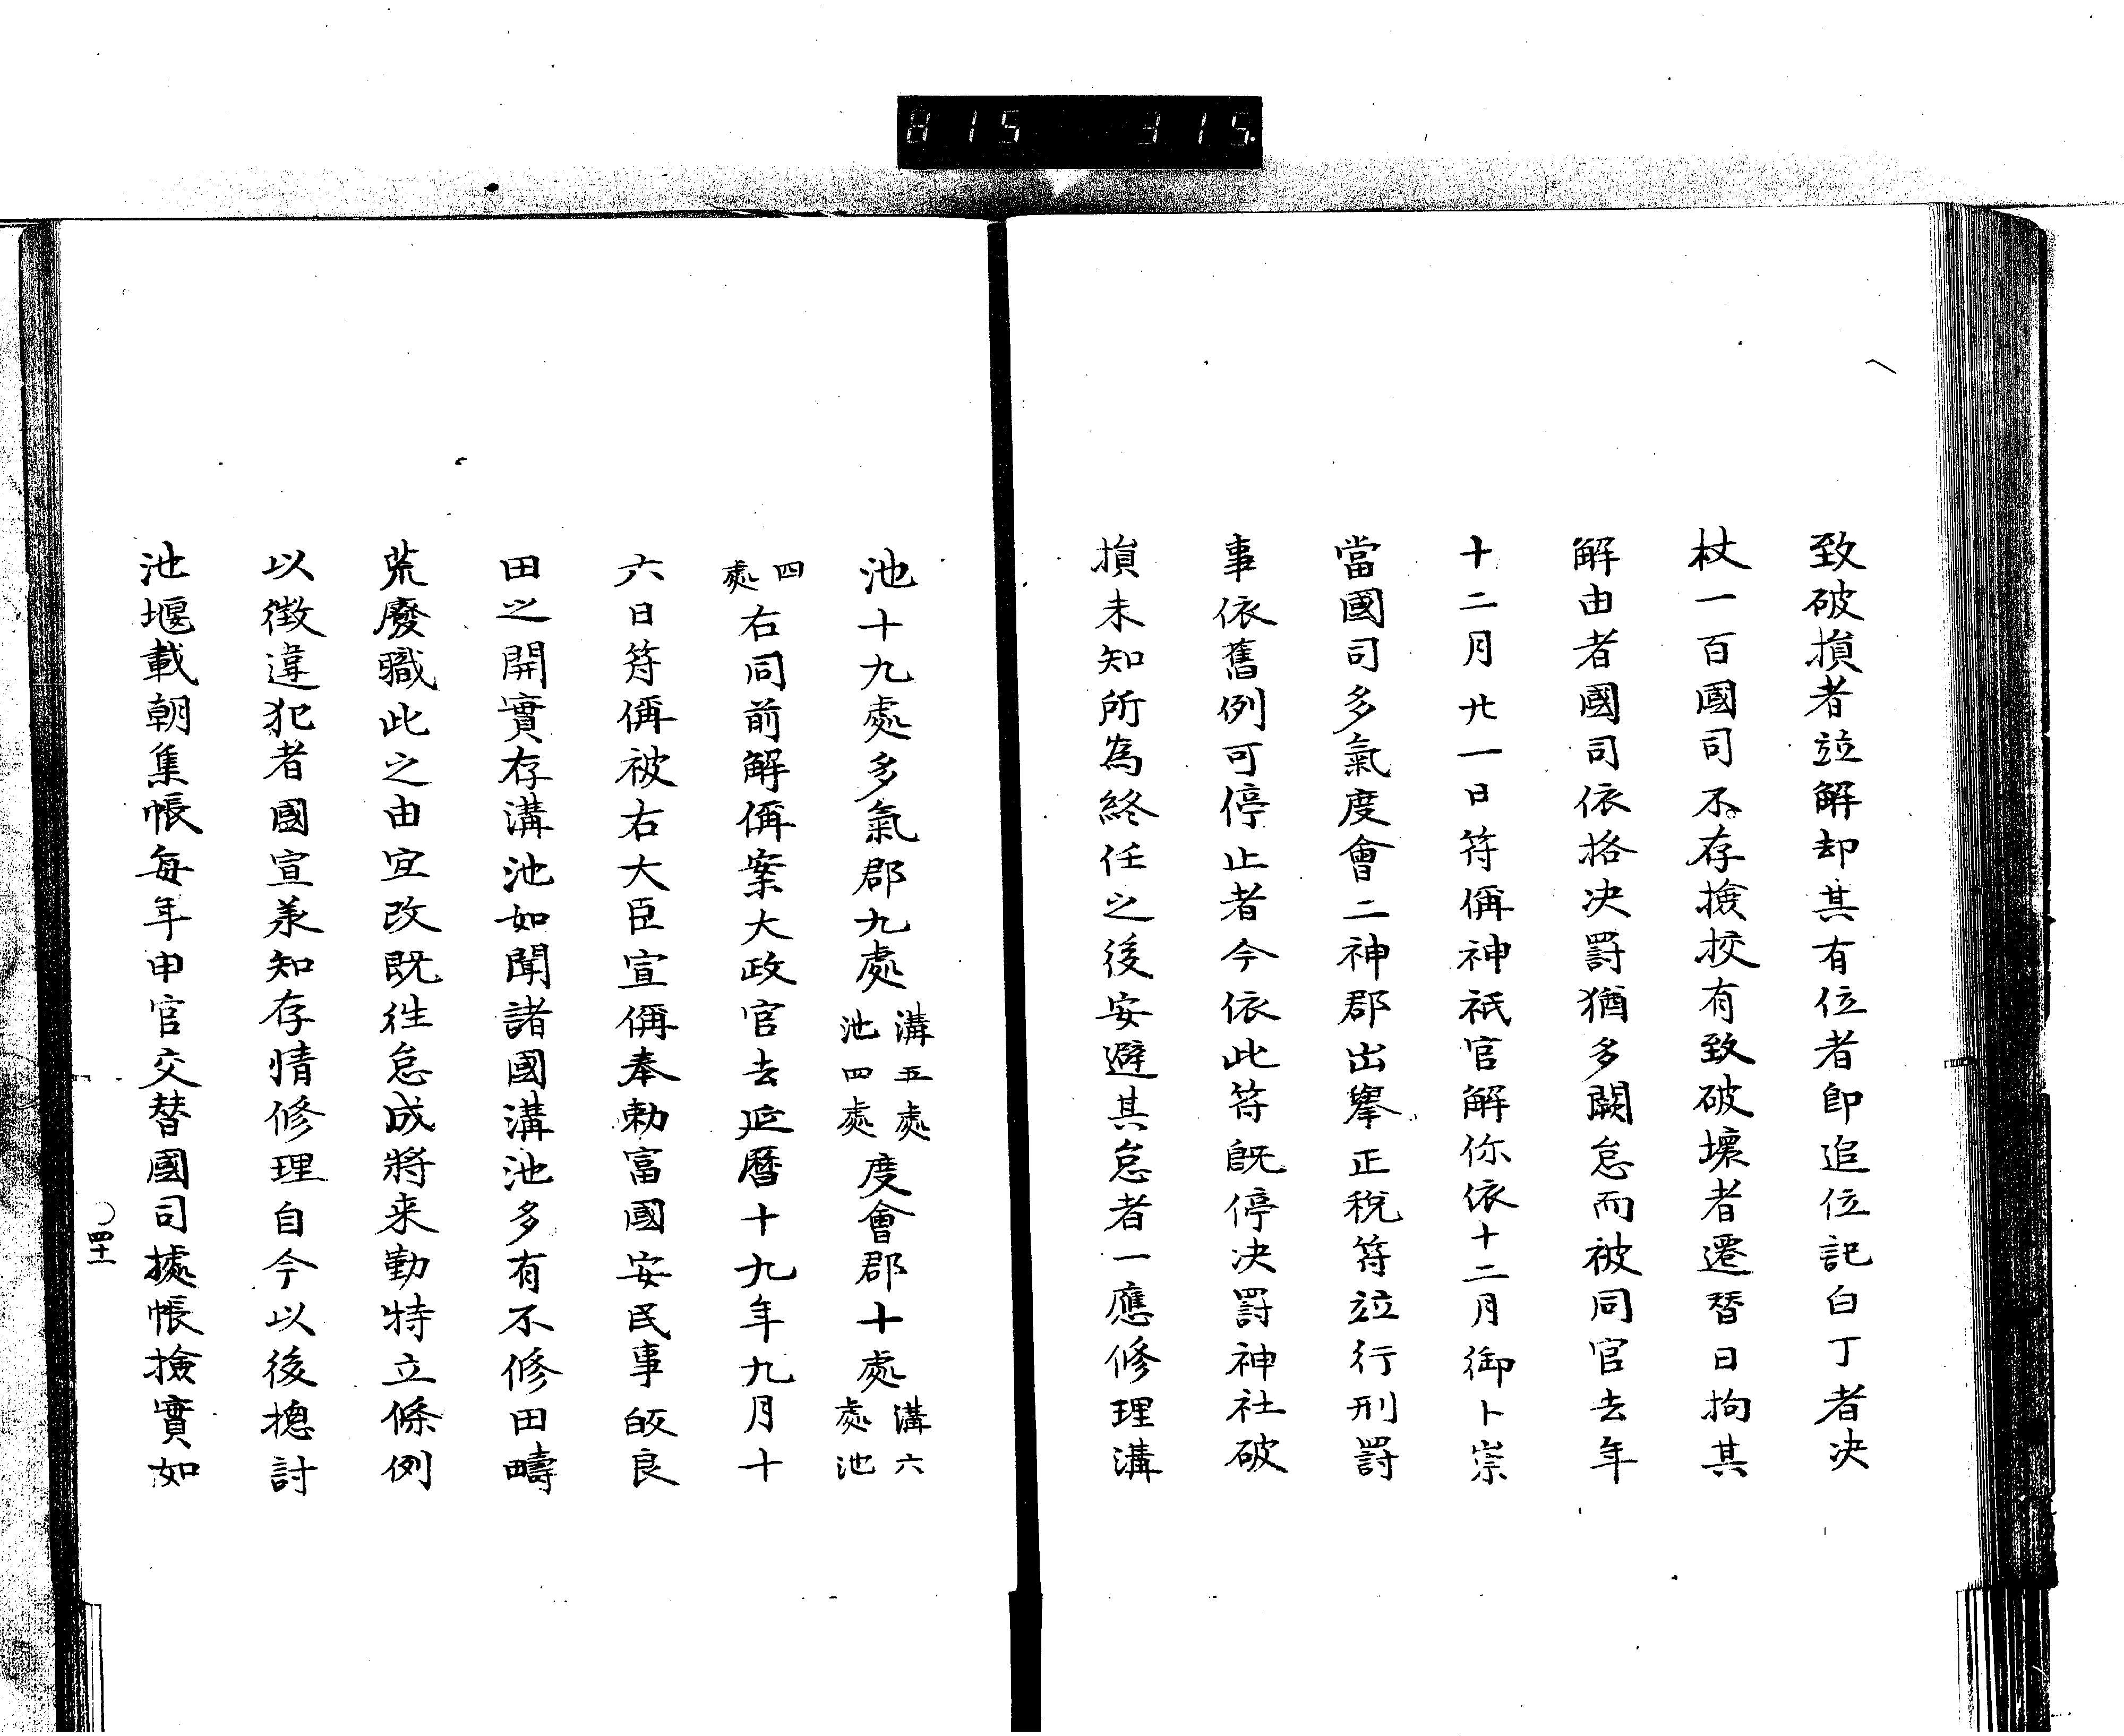 815 315.
致破損者竝解却其有位者即追位記白丁者决
杖一百國司不存撿挍有致破壞者遷替日拘其
解由者國司依格决罸猶多闕怠而被同官去年
十二月廿一日符偁神祇官解你依十二月御卜祟
當國司多氣度會二神郡出擧正税符竝行刑罸
事依舊例可停止者今依此符既停决罸神社破
損未知所為終任之後安避其怠者一應修理溝
池十九處多氣郡九處溝五處池四處度會郡十處溝六處池
四處右同前解偁案大政官去延暦十九年九月十
六日符偁被右大臣宣偁奉勅富國安民事皈良
田之開實存溝池如聞諸國溝池多有不修田疇
荒廢職此之由宜改既徃怠成將来勤特立條例
以徴違犯者國宣承知存情修理自今以後摠討
池堰載朝集帳每年申官交替國司據帳撿實如
四十一